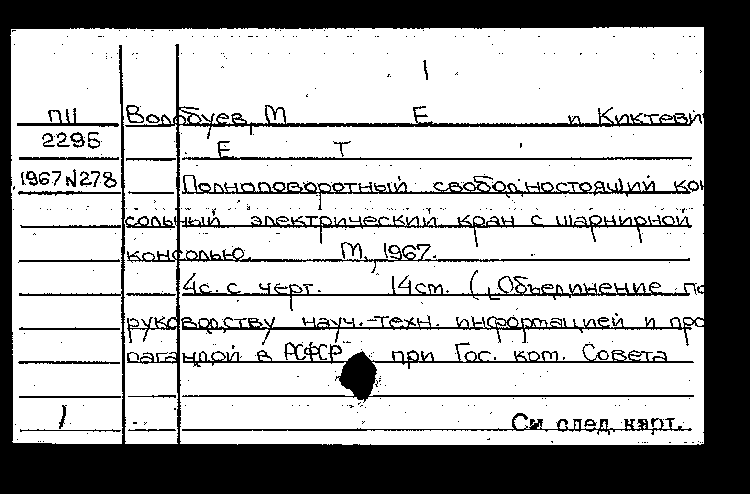 1
П11 Волобуев, М Е и Киктеви
2295 Е Т
1967 N278 Полноповоротный свободностоящий кон
сольный электрический кран с шарнирной
консолью. М, 1967.
4с. с черт. 14ст. ([Объединение по
руководству науч.-техн. информацией и про
пагандой в РСФСР при Гос. ком. Совета
1 См. след. карт.